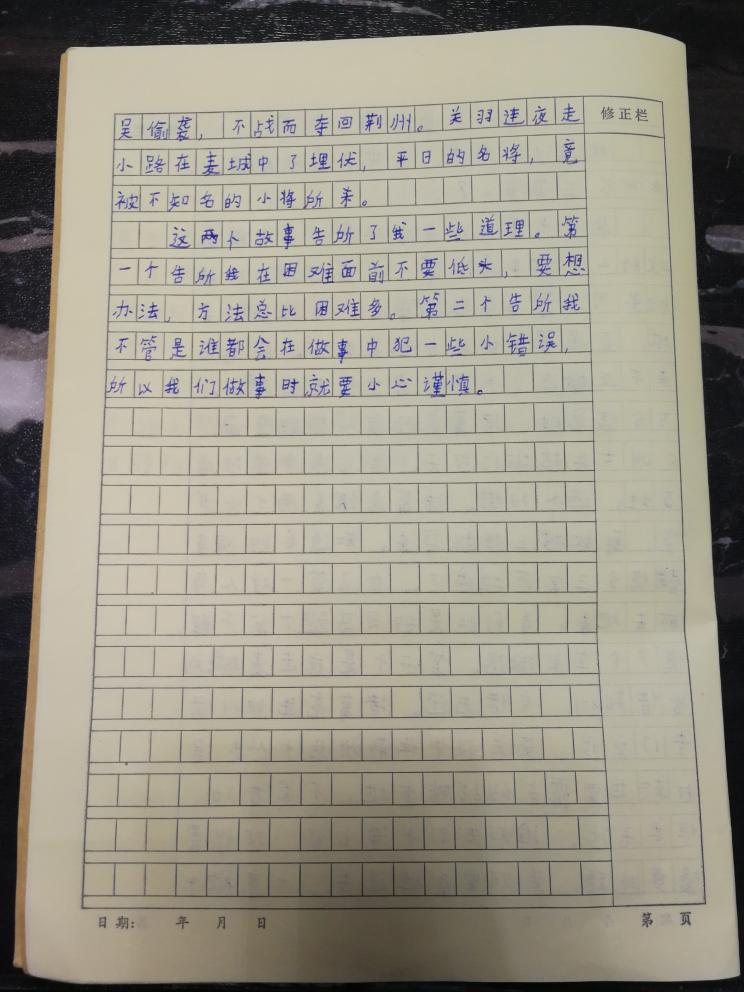 修正栏
吴偷袭，不战而夺回荆州。关羽连夜走
小路在麦城中了埋伏，平日的名将，竟
被不知名的小将所杀。
这两个故事告所了我一些道理。第
一个告所我在困难面前不要低头，要想
办法，方法总比困难多。第二个告所我
不管是谁都会在做事中犯一些小错误，
所以我们做事时就要小心谨慎。
日期: 年 月 日
第 页